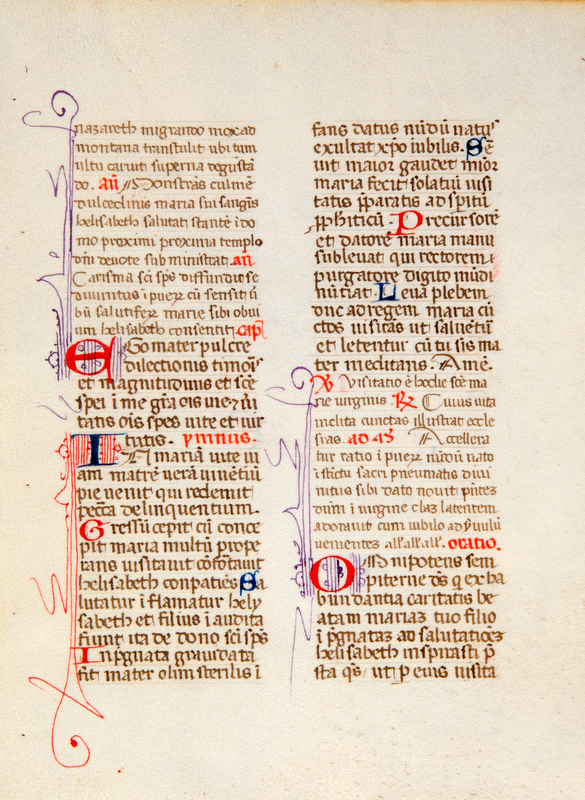 nazareth migrando mox ad
montana transtulit ubi tum
ultu caruit superna degustā
do. añ Monstrās culmē
dulcedinis maria sui sangīs
helisabeth salutat stante ī do
mo proximi proxima templo
dn̄i devote sub ministrat. añ
Carisma sc̄i sp̄s diffundit se
divinitus ī puerꝫ cū sensit ī
bū salutiferꝫ marie sibi obvi
um helisabeth consentit. capl
Ego mater pulcre
dilectionis timoris
et magnitudinis et scē
spei ī me grā ois vie ⁊ v̄i
tatis oīs spes vite et vir
tutis. ymnus.
In mariā vite vi
am matrē verā viventiū
pie venit qui redemit
peccā delinquentium.
Gressū cepit cū conce
pit maria multū prope
rans visitavit cōfortavit
helisabeth conpatiēs Sa
lutatur īflamatur hely
sabeth et filius ī audita
fiunt ita de dono sc̄i sp̄s
Inp̄gnata gravidata
fit mater olim sterilis ī
fans datus nūdū natus
exultat xp̄o iubilis. Sē
vit maior gaudet mīor
maria fecit solatiū visi
tatis p̄paratis ad spītū
p̄phīticū. Precursorē
et datorē maria manu
sublevat qui rectorem
purgatorē digito mūdi
nūtiat. Leva plebem
duc ad regem maria cū
ctos visitās ut salvetur
et letentur cū tu sis ma
ter meditans. Amē.
℣ Visitatio ē hodie scē ma
rie virginis. ℟ Cuius vita
inclita cunctas illustrat eccle
sias. ad mᵗ Accellera
tur ratio ī puerꝫ nūdū nato
īstictu sacri pneumatis divi
nitus sibi dato novit p̄ntes
dn̄m ī virgine clās latentem
adoravit cum iubilo ad p̄vulū
venientes all'all'all'. oratio.
Omnipotens sem
piterne ds̄ q̄ ex ha
bundantia caritatis be
atam mariaꝫ tuo filio
īp̄gnataꝫ ad salutationeꝫ
helisabeth inspirasti p̄
sta qs̄ ut p eius visita